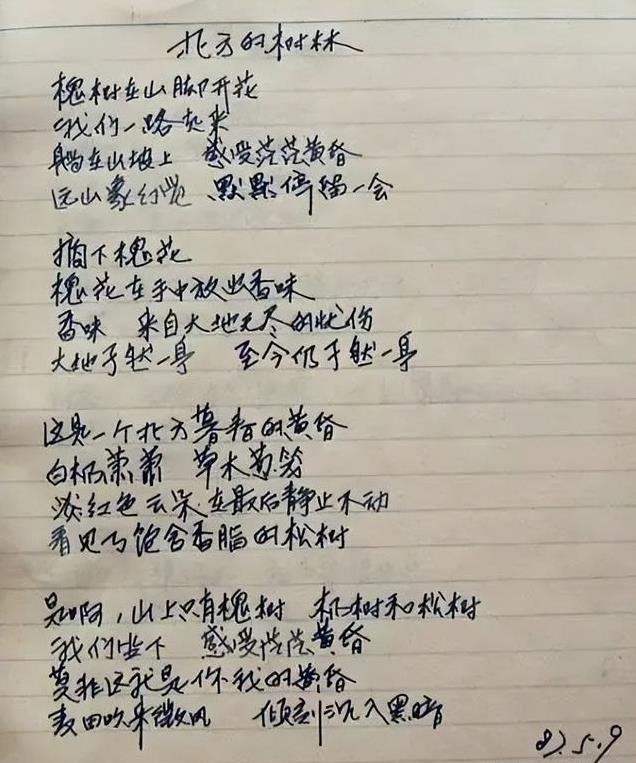 北方的树林
槐树在山脚开花
我们一路走来
躺在山坡上 感受茫茫黄昏
远山象幻觉 默默停留一会
摘下槐花
槐花在手中放出香味
香味 来自大地无尽的忧伤
大地孑然一身 至今仍孑然一身
这是一个北方暮春的黄昏
白杨萧萧 草木葱茏
淡红色云朵在最后静止不动
看见了饱含香脂的松树
是啊,山上只有槐树 杨树和松树
我们坐下 感受茫茫黄昏
莫非这就是你我的黄昏
麦田吹来微风 倾刻沉入黑暗
87.5.9